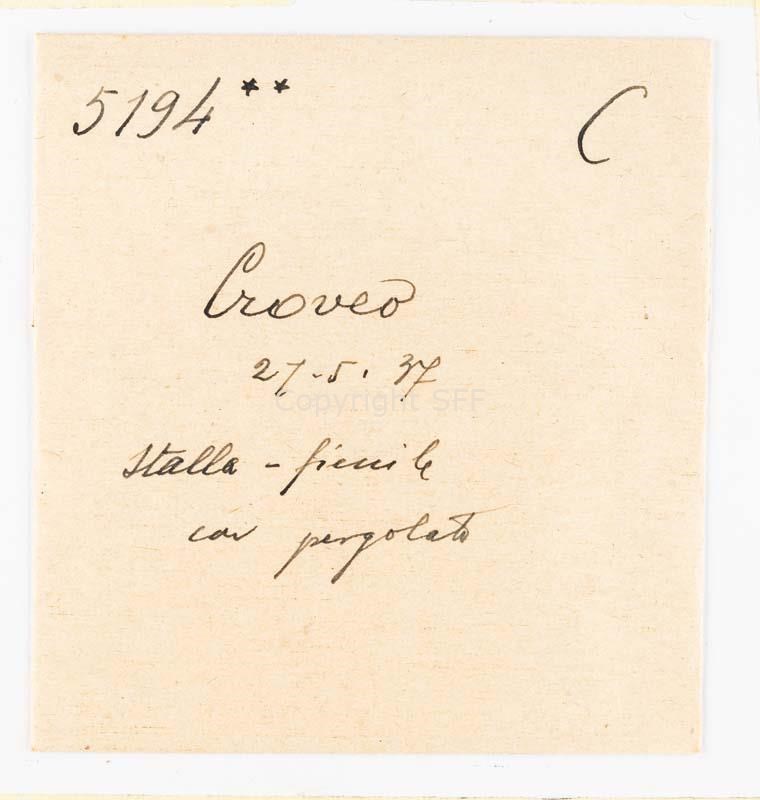 5194** C
Croveo
27-5.37
Copyright SFF
stalla - fienile
con pergolato